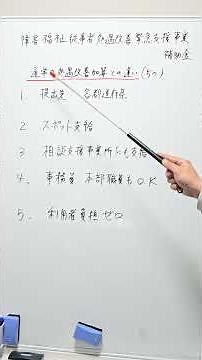 障害福祉従事者処遇改善緊急支援事業
補助金
通常の処遇改善加算との違い(5つ)
1. 提出先 各都道府県
2. スポット支給
3. 相談支援事業所にも支給
4. 事務員 本部職員もOK
5. 利用者負担ゼロ